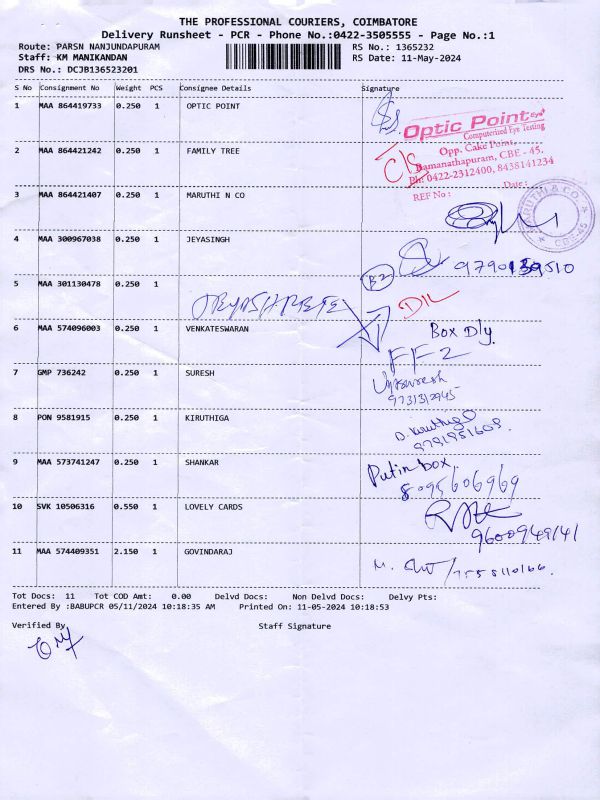 THE PROFESSIONAL COURIERS, COIMBATORE
Delivery Runsheet - PCR - Phone No.:0422-3505555 - Page No.:1
Route: PARSN NANJUNDAPURAM RS No.: 1365232
Staff: KM MANIKANDAN RS Date: 11-May-2024
DRS No.: DCJB136523201
S No Consignment No Weight PCS Consignee Details Signature
1 MAA 864419733 0.250 1 OPTIC POINT
Optic Point Eye+
Computerized Eye Testing
Opp. Cake Point,
Ramanathapuram, CBE - 45.
Ph: 0422-2312400, 8438141234
REF No : Date :
2 MAA 864421242 0.250 1 FAMILY TREE
C/S
3 MAA 864421407 0.250 1 MARUTHI N CO
MARUTHI & CO. CBE-45
4 MAA 300967038 0.250 1 JEYASINGH
B2
5 MAA 301130478 0.250 1
D/L
6 MAA 574096003 0.250 1 VENKATESWARAN Box Dly
FF2
7 GMP 736242 0.250 1 SURESH
8 PON 9581915 0.250 1 KIRUTHIGA
D. Kiruthiga
9 MAA 573741247 0.250 1 SHANKAR Put in box
8095606969
10 SVK 10506316 0.550 1 LOVELY CARDS
9600949141
11 MAA 574409351 2.150 1 GOVINDARAJ
Tot Docs: 11 Tot COD Amt: 0.00 Delvd Docs: Non Delvd Docs: Delvy Pts:
Entered By :BABUPCR 05/11/2024 10:18:35 AM Printed On: 11-05-2024 10:18:53
Verified By Staff Signature